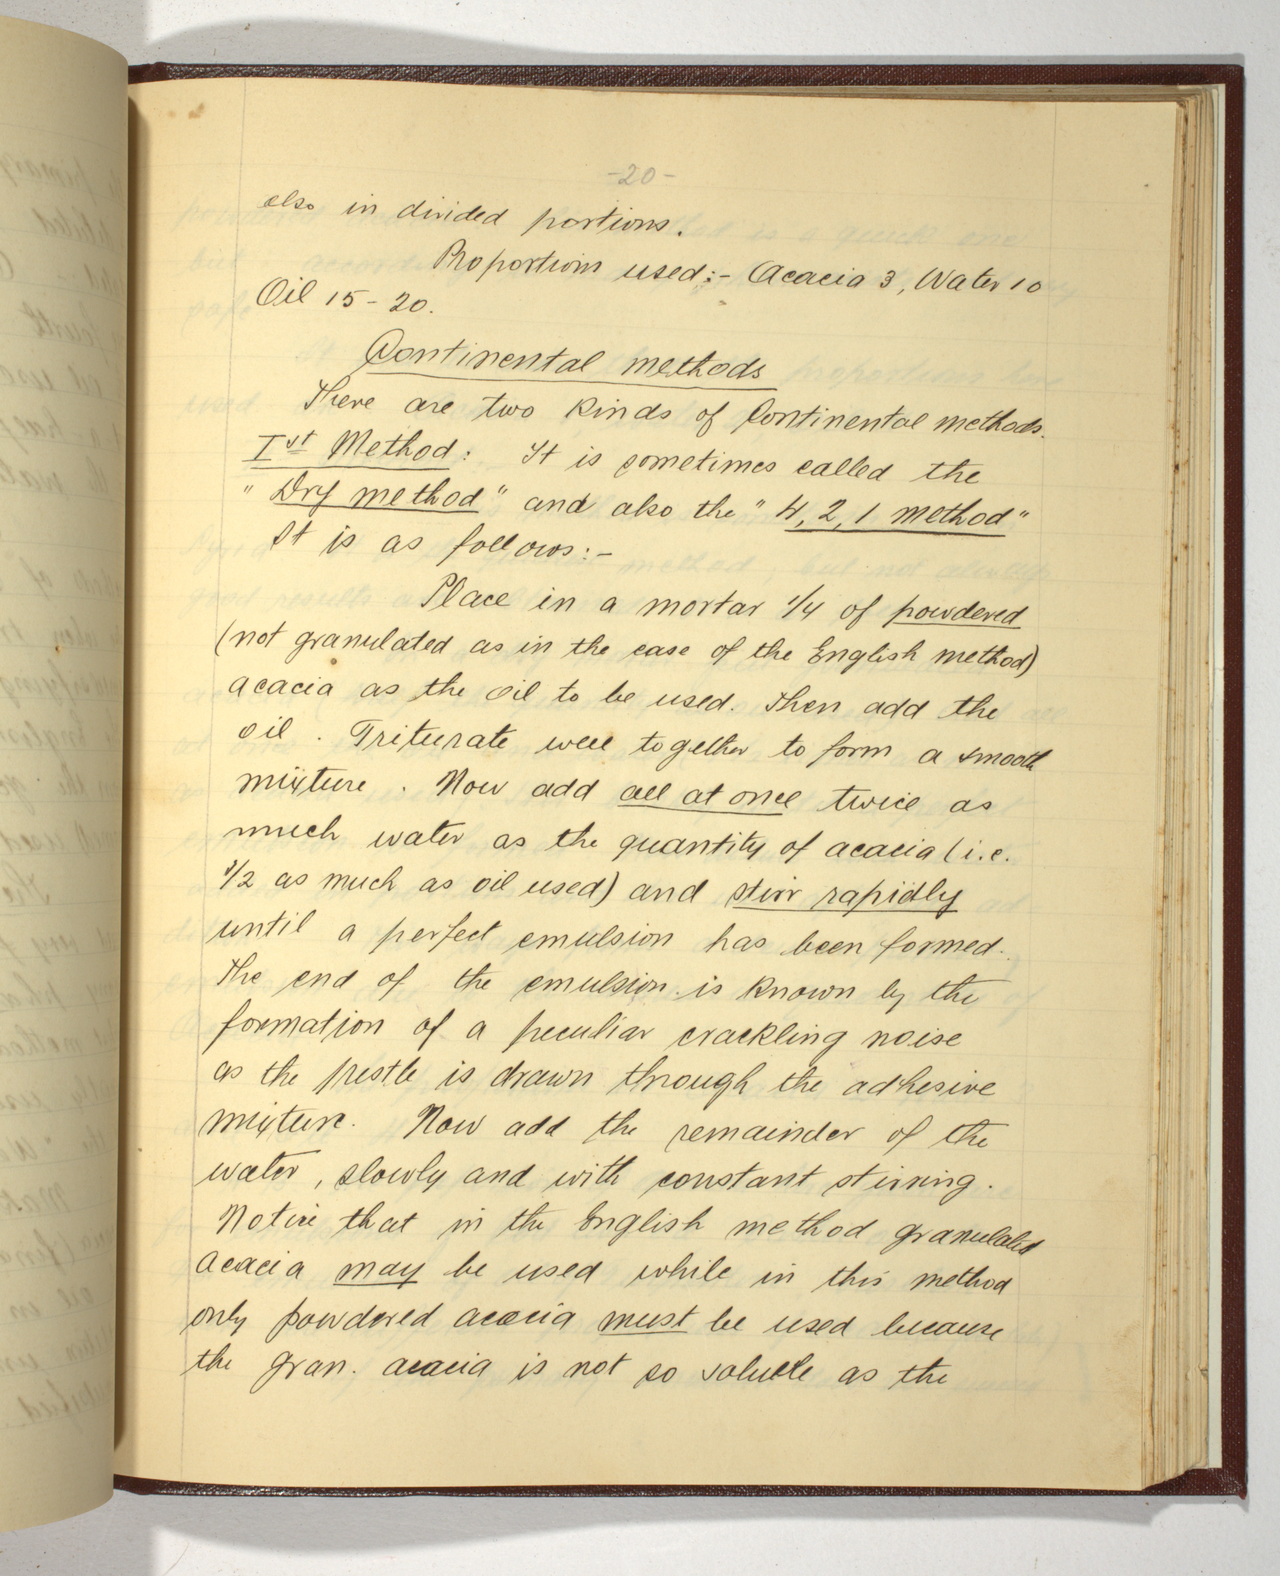 -20-
also in divided portions.
Proportions used:- Acacia 3, Water 10
Oil 15-20.
Continental methods
There are two kinds of Continental methods.
Ist Method: It is sometimes called the
"Dry method" and also the "4, 2, 1 method"
It is as follows:-
Place in a mortar 1/4 of powdered
(not granulated as in the case of the English method)
acacia as the oil to be used. Then add the
oil. Triturate well together to form a smooth
mixture. Now add all at once twice as
much water as the quantity of acacia (i.e.
1/2 as much as oil used) and stirr rapidly
until a perfect emulsion has been formed.
The end of the emulsion is known by the
formation of a peculiar crackling noise
as the pestle is drawn through the adhesive
mixture. Now add the remainder of the
water, slowly and with constant stirring.
Notice that in the English method granulated
acacia may be used while in this method
only powdered acacia must be used because
the gran. acacia is not so soluble as the